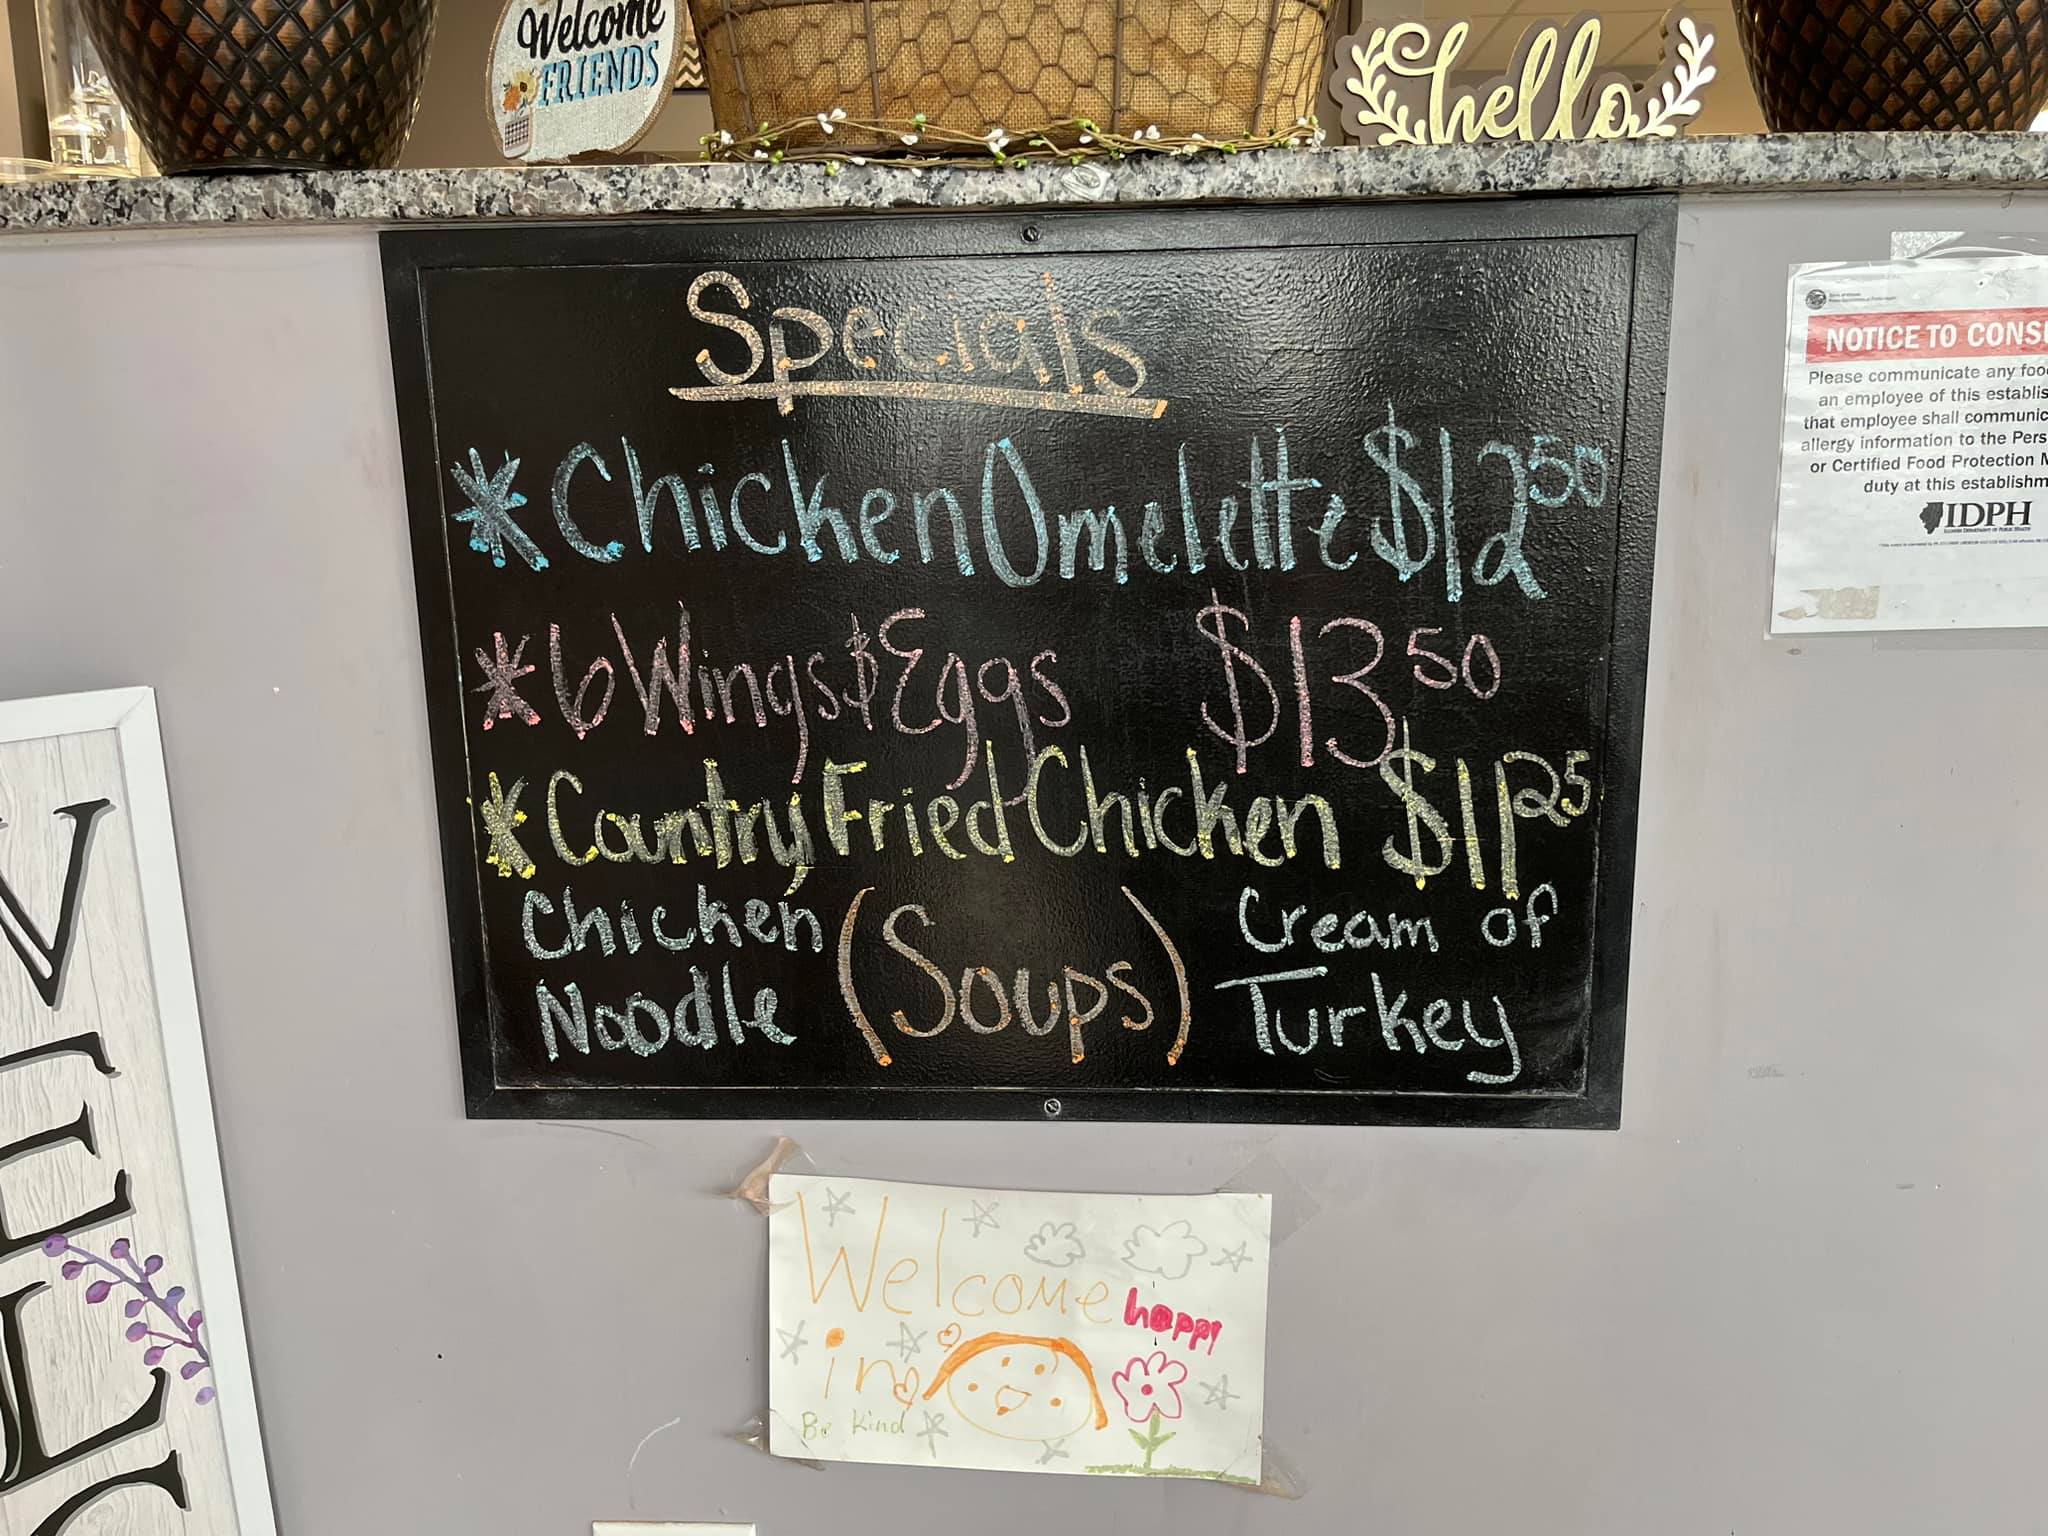 Welcome
FRIENDS
hello
Specials
*Chicken Omelette $12 50
*6 Wings & Eggs $13 50
*Country Fried Chicken $11 25
Chicken
Noodle
(Soups)
Cream of
Turkey
NOTICE TO CONS
Please communicate any foo
an employee of this establis
that employee shall communic
allergy information to the Pers
or Certified Food Protection M
duty at this establishm
IDPH
Welcome
happy
in
Be Kind